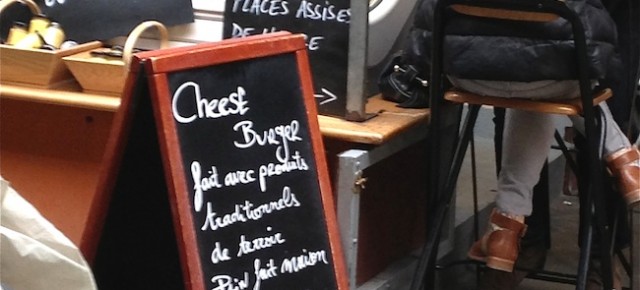 PLACES ASSISES
Cheese
Burger
fait avec produits
traditionnels
de terroir
Pain fait maison